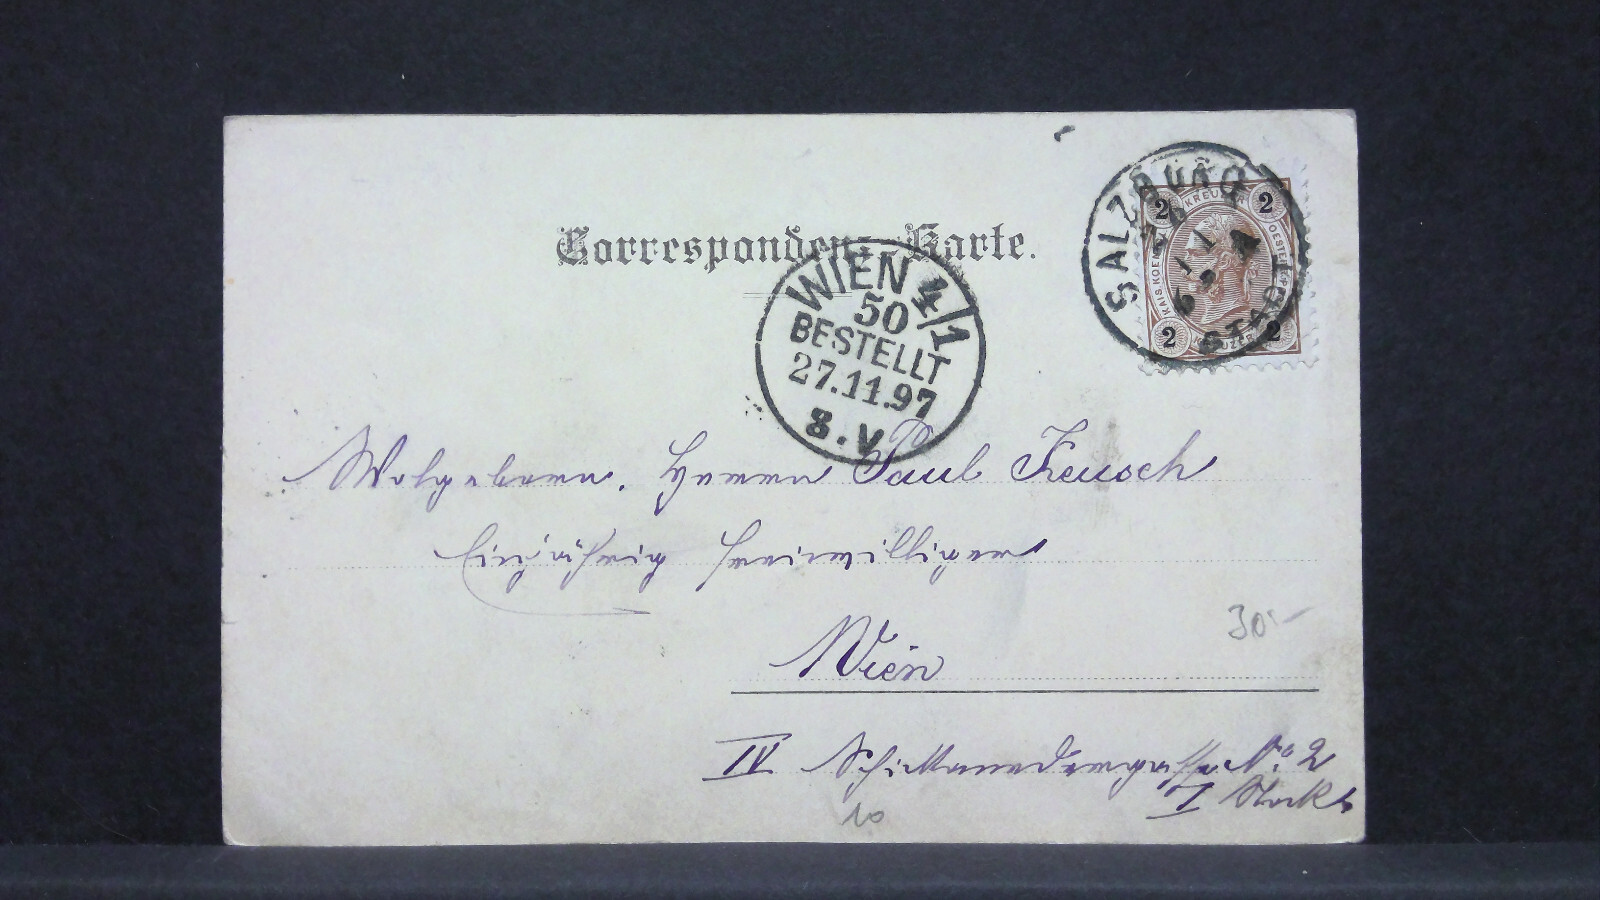 Correspondenz-Karte.
SALZBURG
STADT
2 KREUZER 2
KAIS. KOEN. OESTERR. P
2 KREUZER 2
WIEN 4/1
50
BESTELLT
27.11.97
8.V
Wolgeborn. Herrn Paul
Einjährig Freiwilliger
Wien
30.-
IV Schikanedergasse No. 2
I Stock
10